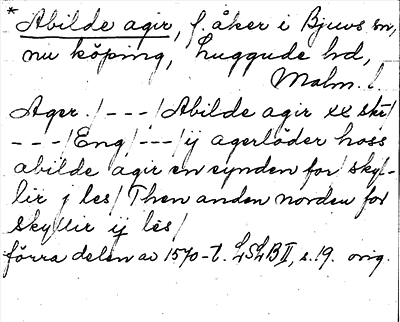 * Abilde agir, f. åker i Bjuvs sn,
nu köping, Luggude hd,
Malm. l.
Ager. / - - - / Abilde agir xx skr /
- - - / Eng / - - - / ij agerlöder hoss
abilde agir en synden for / skyl-
lir j les / Then anden norden for
skyllir ij lès /
förra delen av 1570-t. LSLB II, s. 19. orig.